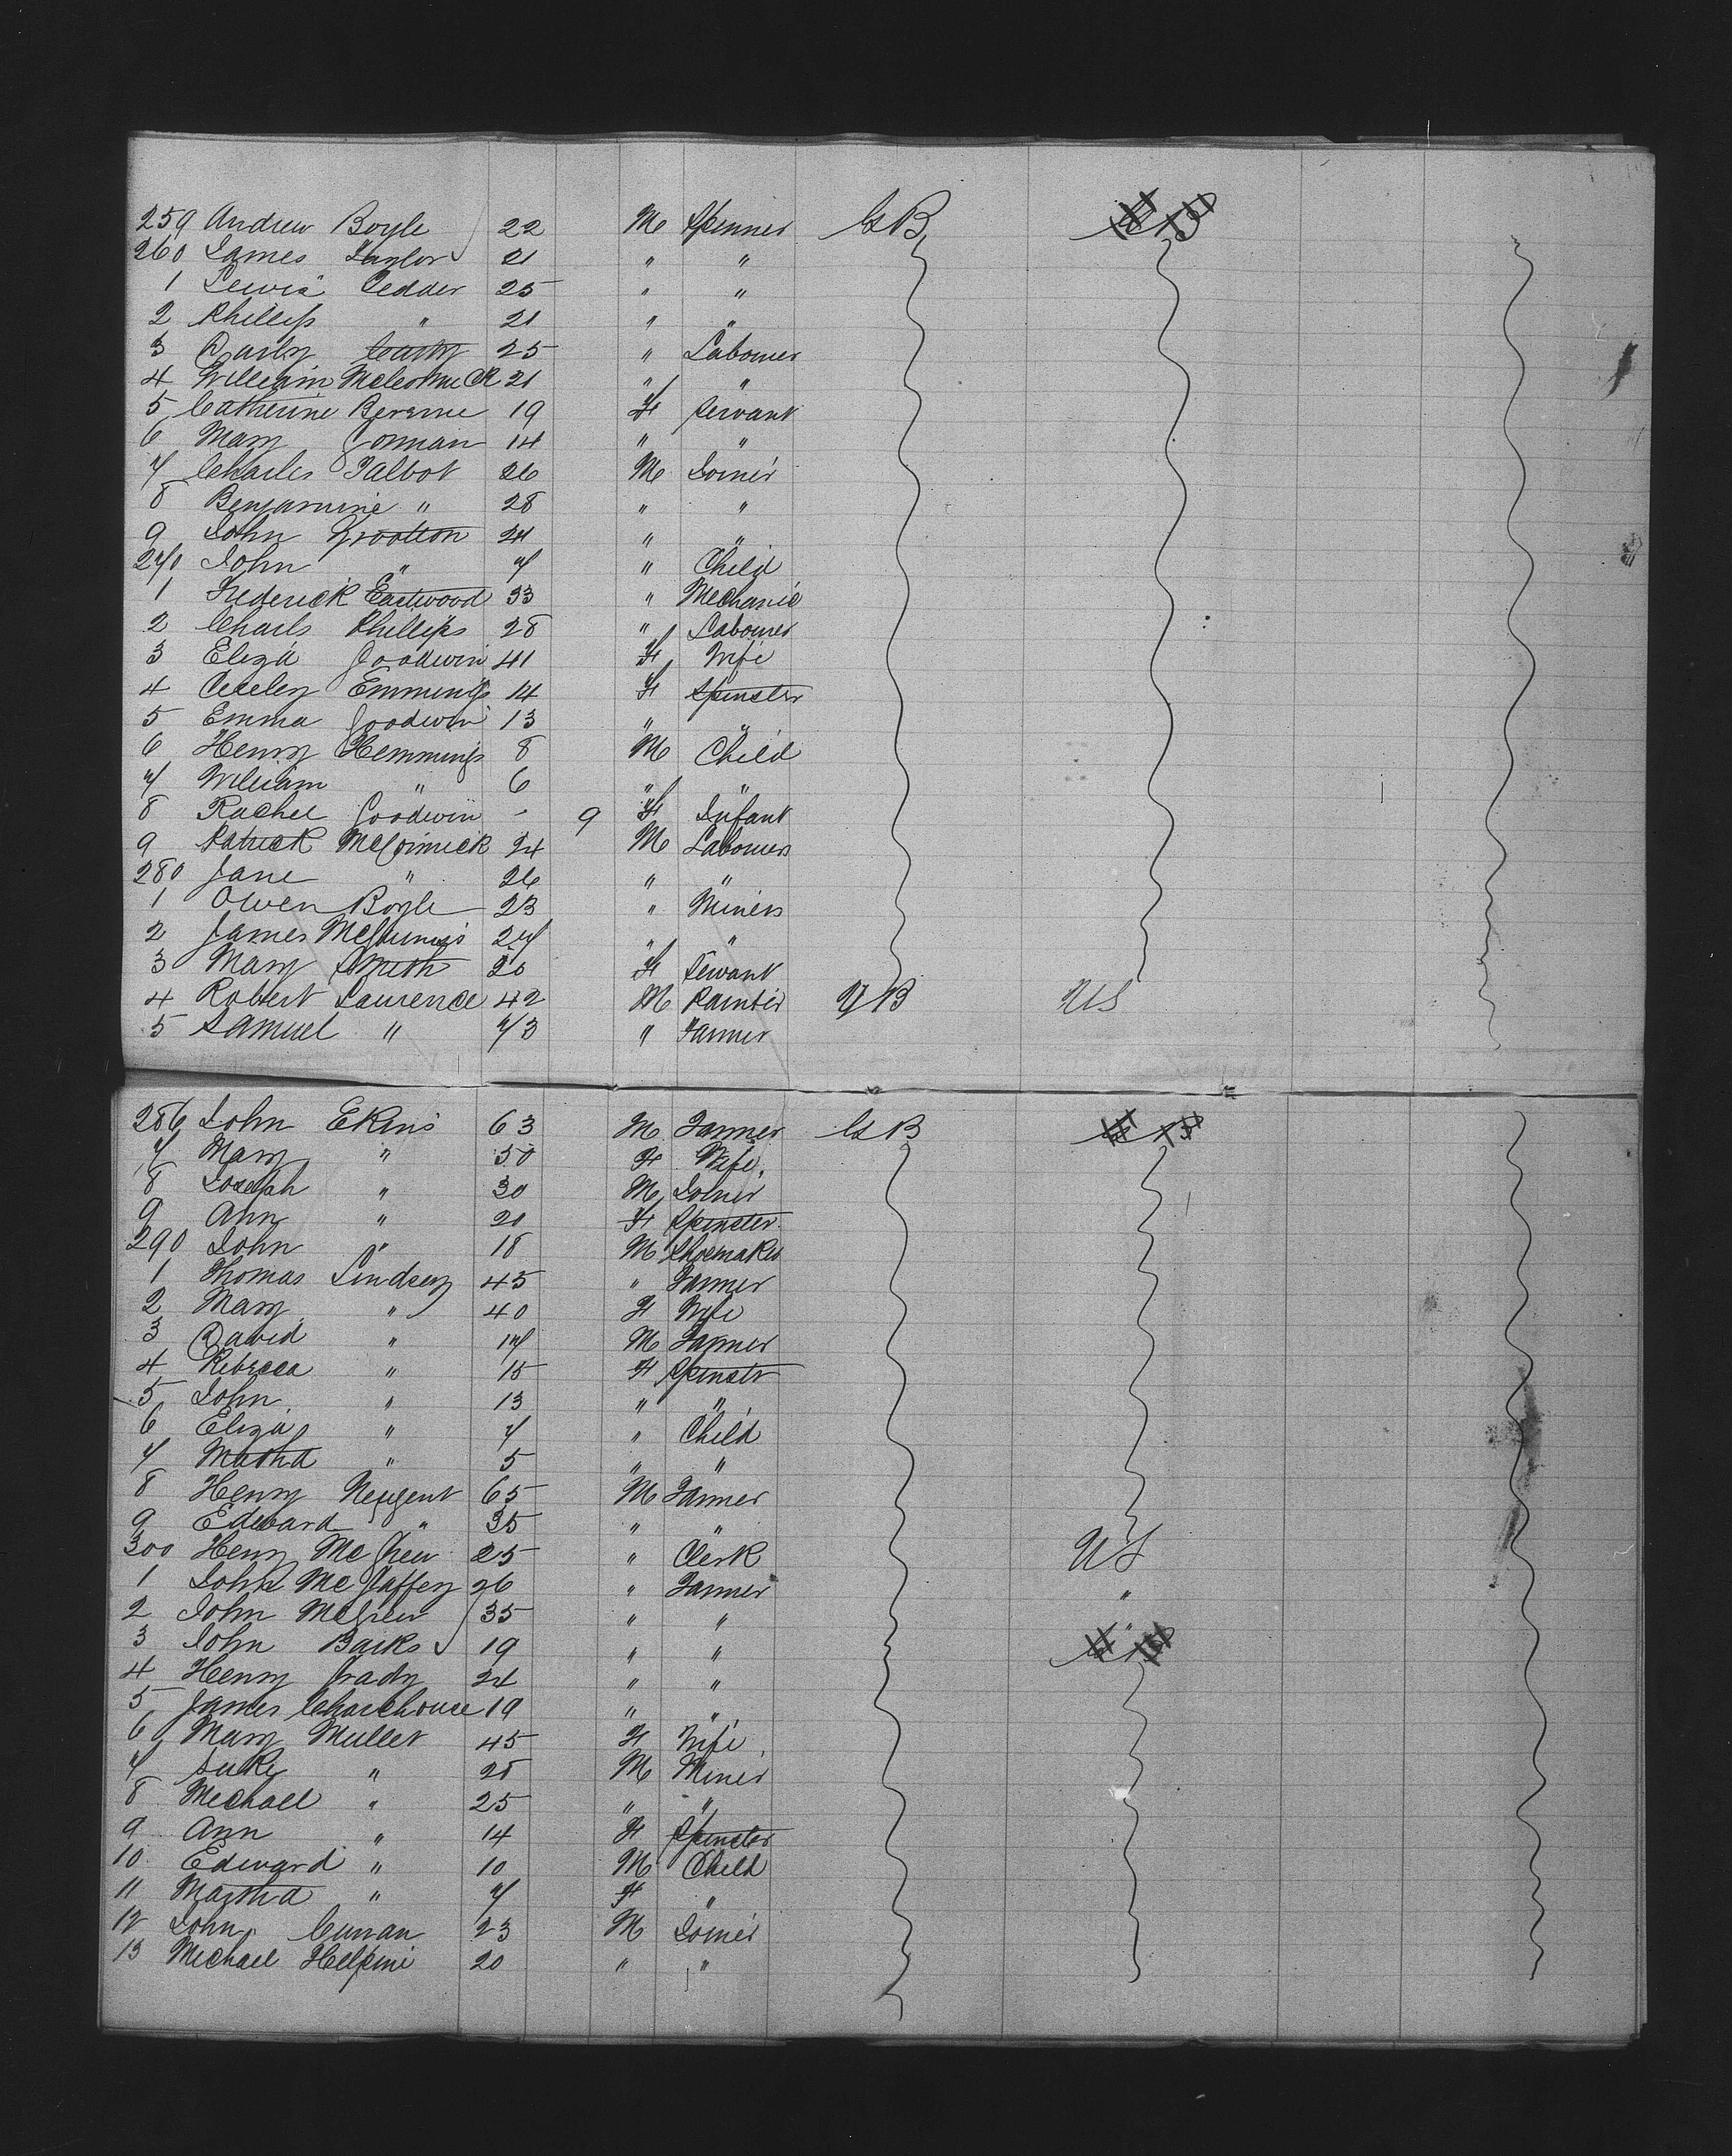 259 Andrew Boyle 22 M Spinner GB GB
260 James Taylor 21 " "
1 Lewis Pedder 25 " "
2 Phillip " 21 " "
3 Darby 25 " Labourer
4 William McCormick 21 " "
5 Catherine 19 F Servant
6 Mary Gorman 14 " "
7 Charles Talbot 26 M Joiner
8 Benjamine " 28 " "
9 John Grootton 24 " "
270 John " 7 " Child
1 Frederick Eastwood 33 " Mechanic
2 Charls Phillips 28 " Labourer
3 Eliza Goodwin 41 F Wife
4 Emmings 14 F Spinster
5 Emma Goodwin 13 " "
6 Henry Hemmings 8 M Child
7 William " 6 " "
8 Rachel Goodwin - 9 F Infant
9 Patrick McCormick 24 M Labourers
280 Jane " 26 " "
1 Owen Boyle 23 " Miners
2 James 27 " "
3 Mary Smith 20 F Servant
4 Robert Laurence 42 M Painter GB US
5 Samuel " 73 " Farmer
286 John Ekins 63 M Farmer GB GB
7 Mary " 50 F Wife
8 Joseph " 30 M Joiner
9 Ann " 20 F Spinster
290 John " 18 M Shoemaker
1 Thomas Lindsey 45 " Farmer
2 Mary " 40 F Wife
3 David " 17 M Farmer
4 Rebecca " 15 F Spinstr
5 John " 13 " "
6 Eliza " 7 " Child
7 Martha " 5 " "
8 Henry Neugent 65 M Farmer
9 Edward " 35 " "
300 Henry McGrew 25 " Clerk US
1 John McGaffery 26 " Farmer "
2 John McGrew 35 " " "
3 John Barks 19 " " GB
4 Henry Grady 24 " "
5 James Charlhouse 19 " "
6 Mary Mullet 45 F Wife
7 " 28 M Miner
8 Michael " 25 " "
9 Ann " 14 F Spinster
10 Edward " 10 M Child
11 Martha " 7 F "
12 John Curran 23 M Joiner
13 Michael Helpini 20 " "